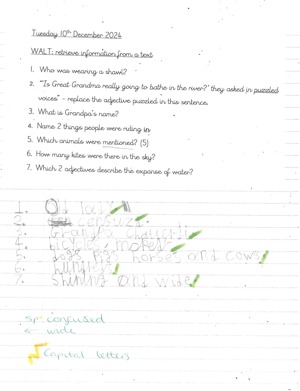 Tuesday 10th December 2024
WALT: retrieve information from a text
1. Who was wearing a shawl?
2. "'Is Great Grandma really going to bathe in the river?' they asked in puzzled
voices" - replace the adjective puzzled in this sentence.
3. What is Grandpa's name?
4. Name 2 things people were riding in
5. Which animals were mentioned? (5)
6. How many kites were there in the sky?
7. Which 2 adjectives describe the expanse of water?
1. Old lady
2.
3. Granpa
4. bicycles, mopeds
5. dogs, pigs horses and cows
6. hundreds
7. shining and wide
sp confused
wide
Capital letters